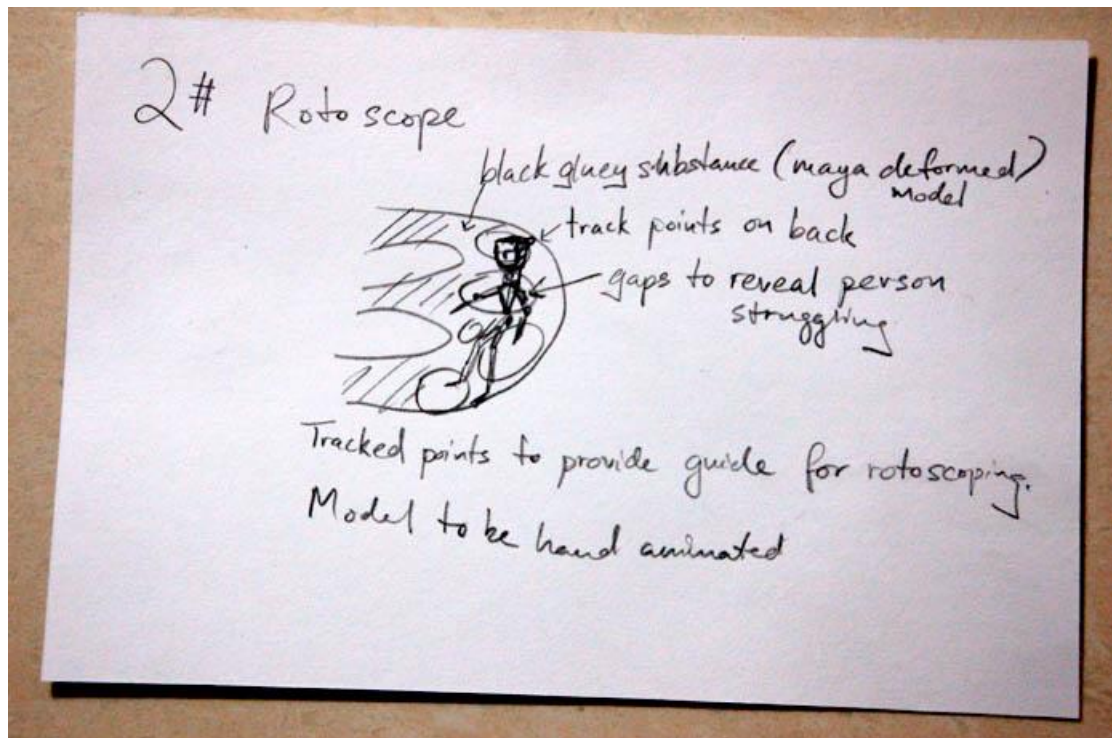 2# Rotoscope
black gluey substance (maya deformed)
model
track points on back
gaps to reveal person
struggling
Tracked points to provide guide for rotoscoping.
Model to be hand animated